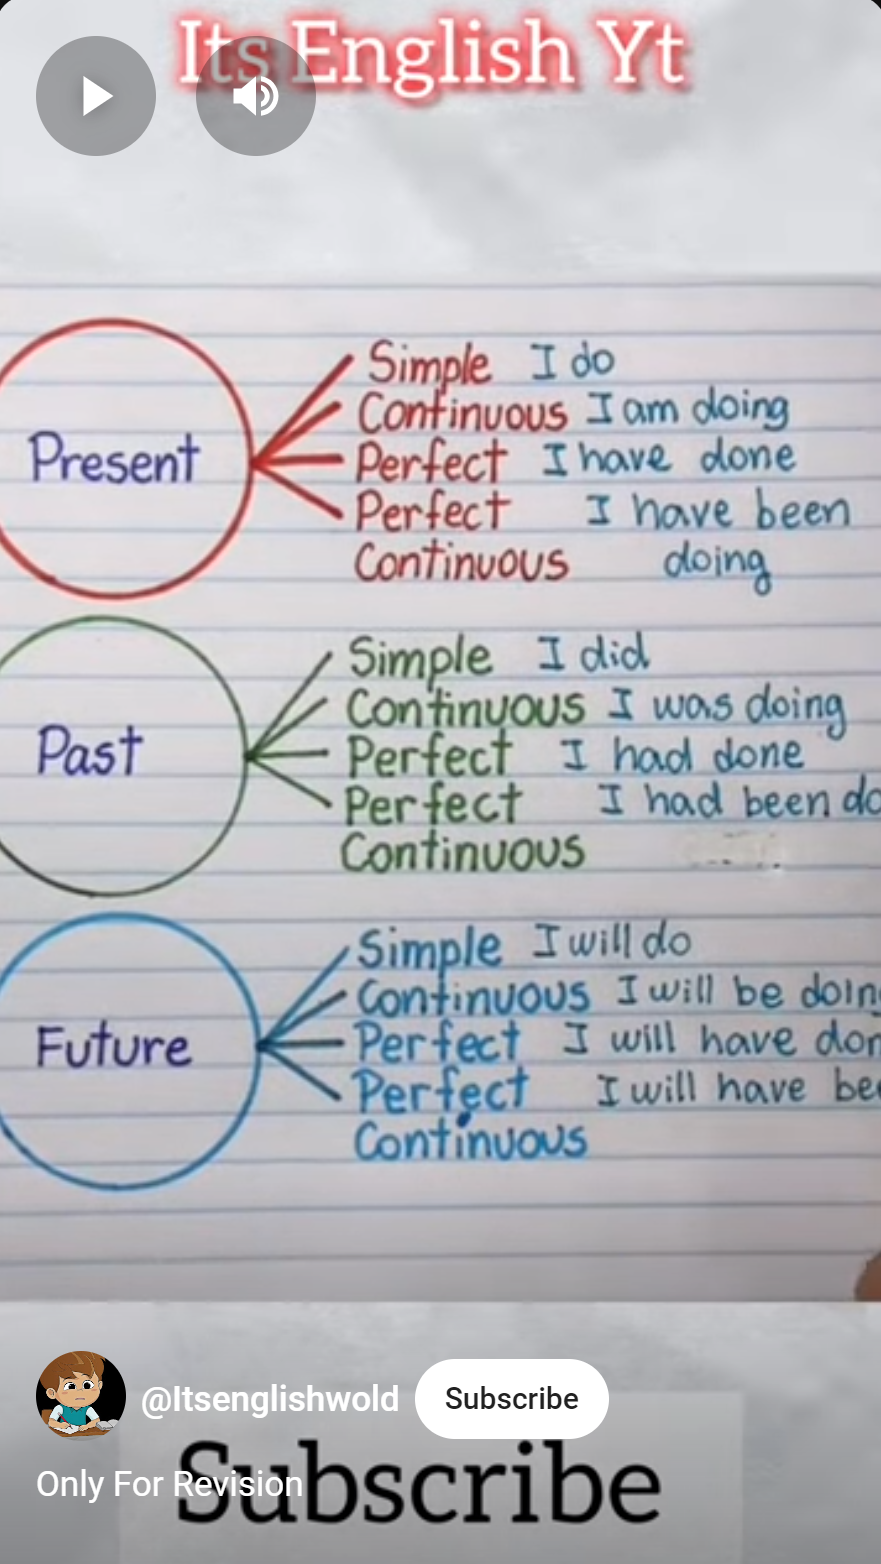 Its English Yt
Present
Simple I do
Continuous I am doing
Perfect I have done
Perfect I have been
Continuous doing
Past
Simple I did
Continuous I was doing
Perfect I had done
Perfect I had been do
Continuous
Future
Simple I will do
Continuous I will be doing
Perfect I will have don
Perfect I will have bee
Continuous
@Itsenglishwold Subscribe
Only For Revision
Subscribe